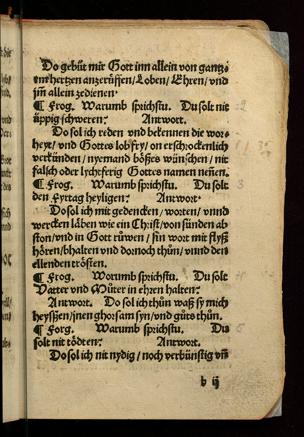 Do gebüt mir Gott inn allein von gantz⸗
em hertzen anzerüffen/Loben/Ehren/vnd
jm̄ allein zedienen.
¶ Frog. Warumb sprichstu. Du solt nit
üppig schweren: Antwort.
Do sol ich reden vnd bekennen die wor⸗
heyt/vnd Gottes lob fry/on erschrockenlich
verkünden/nyemand bößes wünschen/nit
falsch oder lychtferig Gottes namen neñen.
¶ Frog. Warumb sprichstu. Du solt
den Fyrtag heyligen: Antwort.
Do sol ich mit gedencken/worten/vnnd
wercken löben wie ein Christ/von sünden ab
ston/vnd in Gott rüwen/sin wort mit flyß
hören/bhalten vnd dornoch thün/vnnd den
ellenden trösten.
¶ Frog. Worumb sprichstu. Du solt
Vatter vnd Müter in ehren halten:
Antwort. Do sol ich thün waß sy mich
heyssen/jnen ghorsam syn/vnd güts thün.
¶ Forg. Warumb sprichstu. Du
solt nit tödten: Antwort.
Do sol ich nit nydig/noch verbünstig vñ
b ij